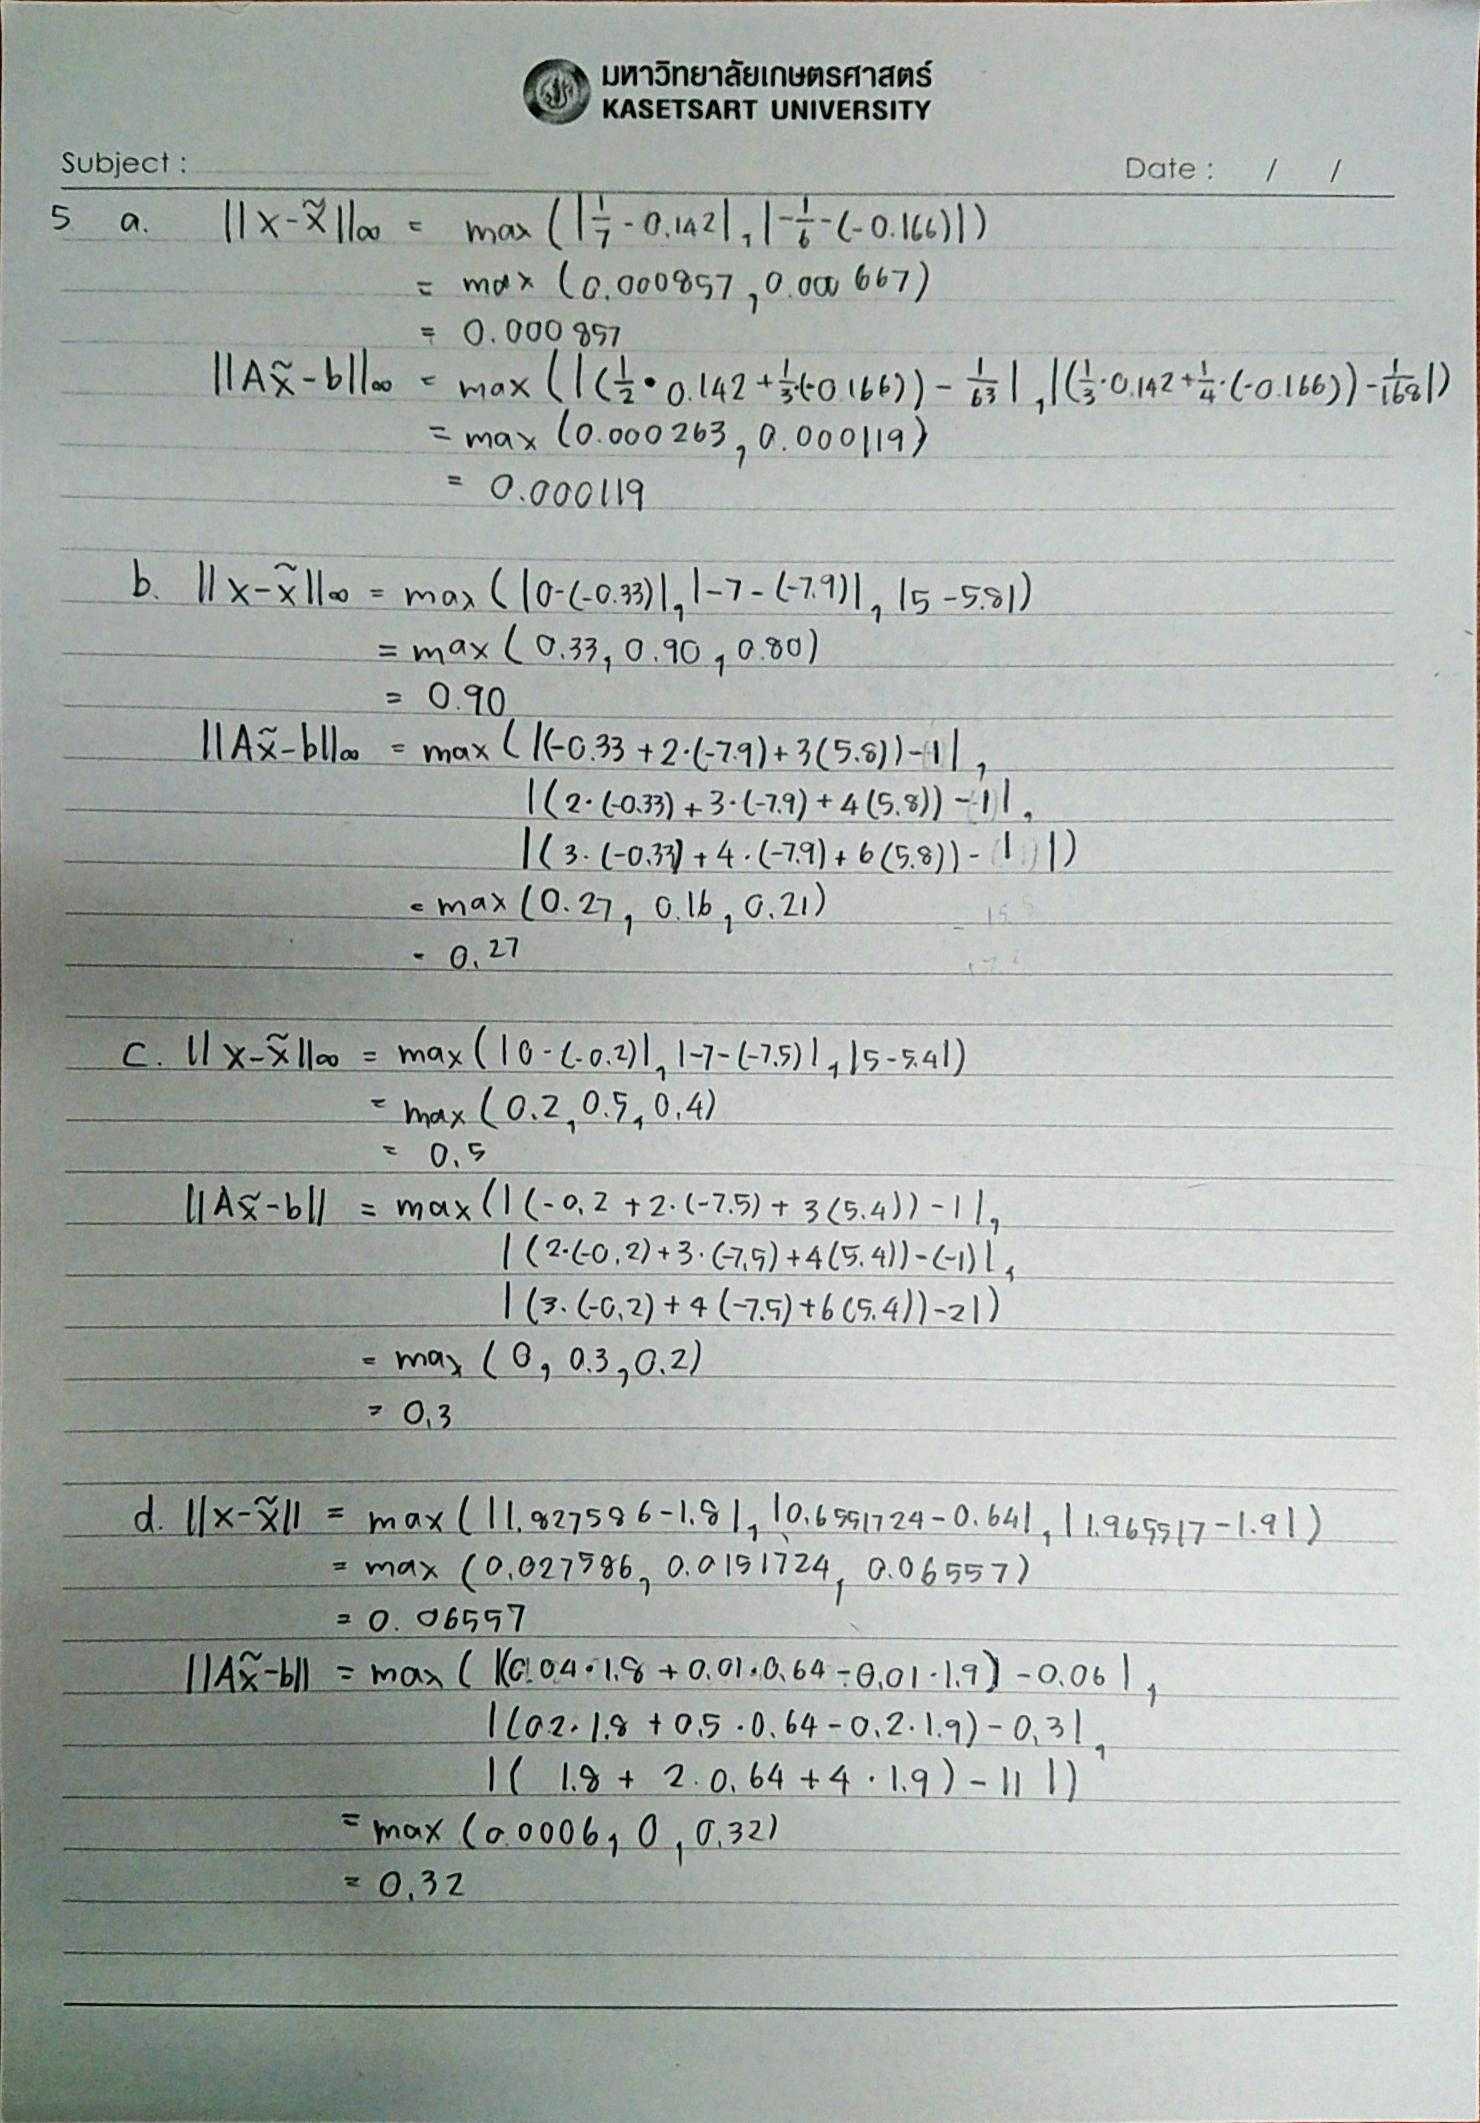 มหาวิทยาลัยเกษตรศาสตร์
KASETSART UNIVERSITY
Subject :
Date : / /
5 a. ||x-x̃||∞ = max(|1/7 - 0.142|, |-1/6 - (-0.166)|)
= max (0.000857, 0.000667)
= 0.000857
||Ax̃-b||∞ = max(|(1/2 • 0.142 + 1/3·(-0.166)) - 1/63|, |(1/3·0.142 + 1/4·(-0.166)) - 1/168|)
= max (0.000263, 0.000119)
= 0.000119
b. ||x-x̃||∞ = max(|0-(-0.33)|, |-7-(-7.9)|, |5-5.8|)
= max(0.33, 0.90, 0.80)
= 0.90
||Ax̃-b||∞ = max(|(-0.33 + 2·(-7.9) + 3(5.8)) - 1|,
|(2·(-0.33) + 3·(-7.9) + 4(5.8)) - 1|,
|(3·(-0.33) + 4·(-7.9) + 6(5.8)) - 1|)
= max(0.27, 0.16, 0.21)
= 0.27
c. ||x-x̃||∞ = max(|0-(-0.2)|, |-7-(-7.5)|, |5-5.4|)
= max(0.2, 0.5, 0.4)
= 0.5
||Ax̃-b|| = max(|(-0.2 + 2·(-7.5) + 3(5.4)) - 1|,
|(2·(-0.2) + 3·(-7.5) + 4(5.4)) - (-1)|,
|(3·(-0.2) + 4(-7.5) + 6(5.4)) - 2|)
= max (0, 0.3, 0.2)
= 0.3
d. ||x-x̃|| = max(|1.827586-1.8|, |0.6551724-0.64|, |1.965517-1.9|)
= max (0.027586, 0.0151724, 0.06557)
= 0.06557
||Ax̃-b|| = max(|(0.04·1.8 + 0.01·0.64 - 0.01·1.9) - 0.06|,
|(0.2·1.8 + 0.5·0.64 - 0.2·1.9) - 0.3|,
|(1.8 + 2·0.64 + 4·1.9) - 11|)
= max (0.0006, 0, 0.32)
= 0.32